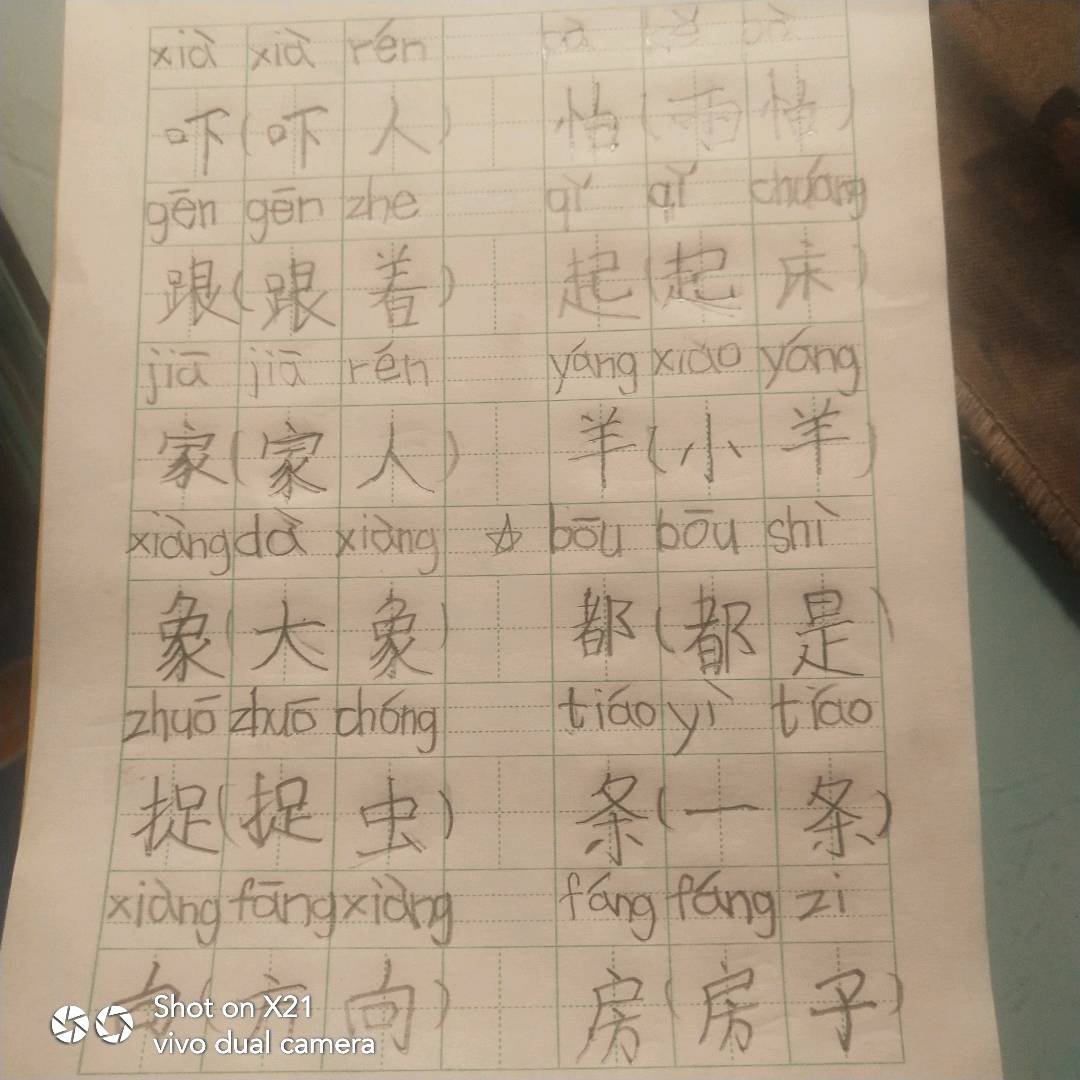 xià xià rén
吓(吓人) 怕(雨怕)
gēn gēn zhe qǐ qǐ chuáng
跟(跟着) 起(起床)
jiā jiā rén yáng xiǎo yáng
家(家人) 羊(小羊)
xiàng dà xiàng ☆ bōu bōu shì
象(大象) 都(都是)
zhuō zhuō chóng tiáo yì tiáo
捉(捉虫) 条(一条)
xiàng fāng xiàng fáng fáng zi
向(方向) 房(房子)
Shot on X21
vivo dual camera